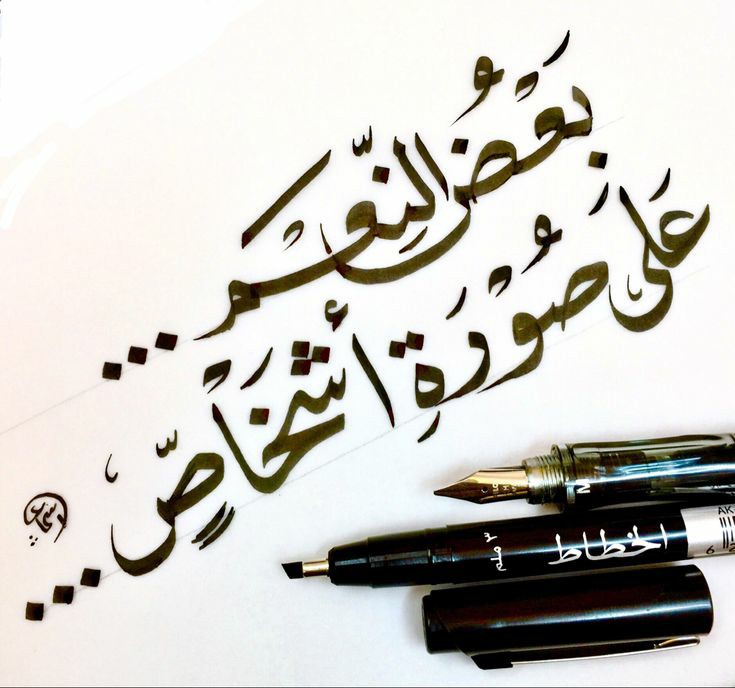 بَعْضُ النِّعَم ...
عَلَى صُوْرَةِ أَشْخَاصٍ ...
الخطاط
٣ ملم
M
AK
6